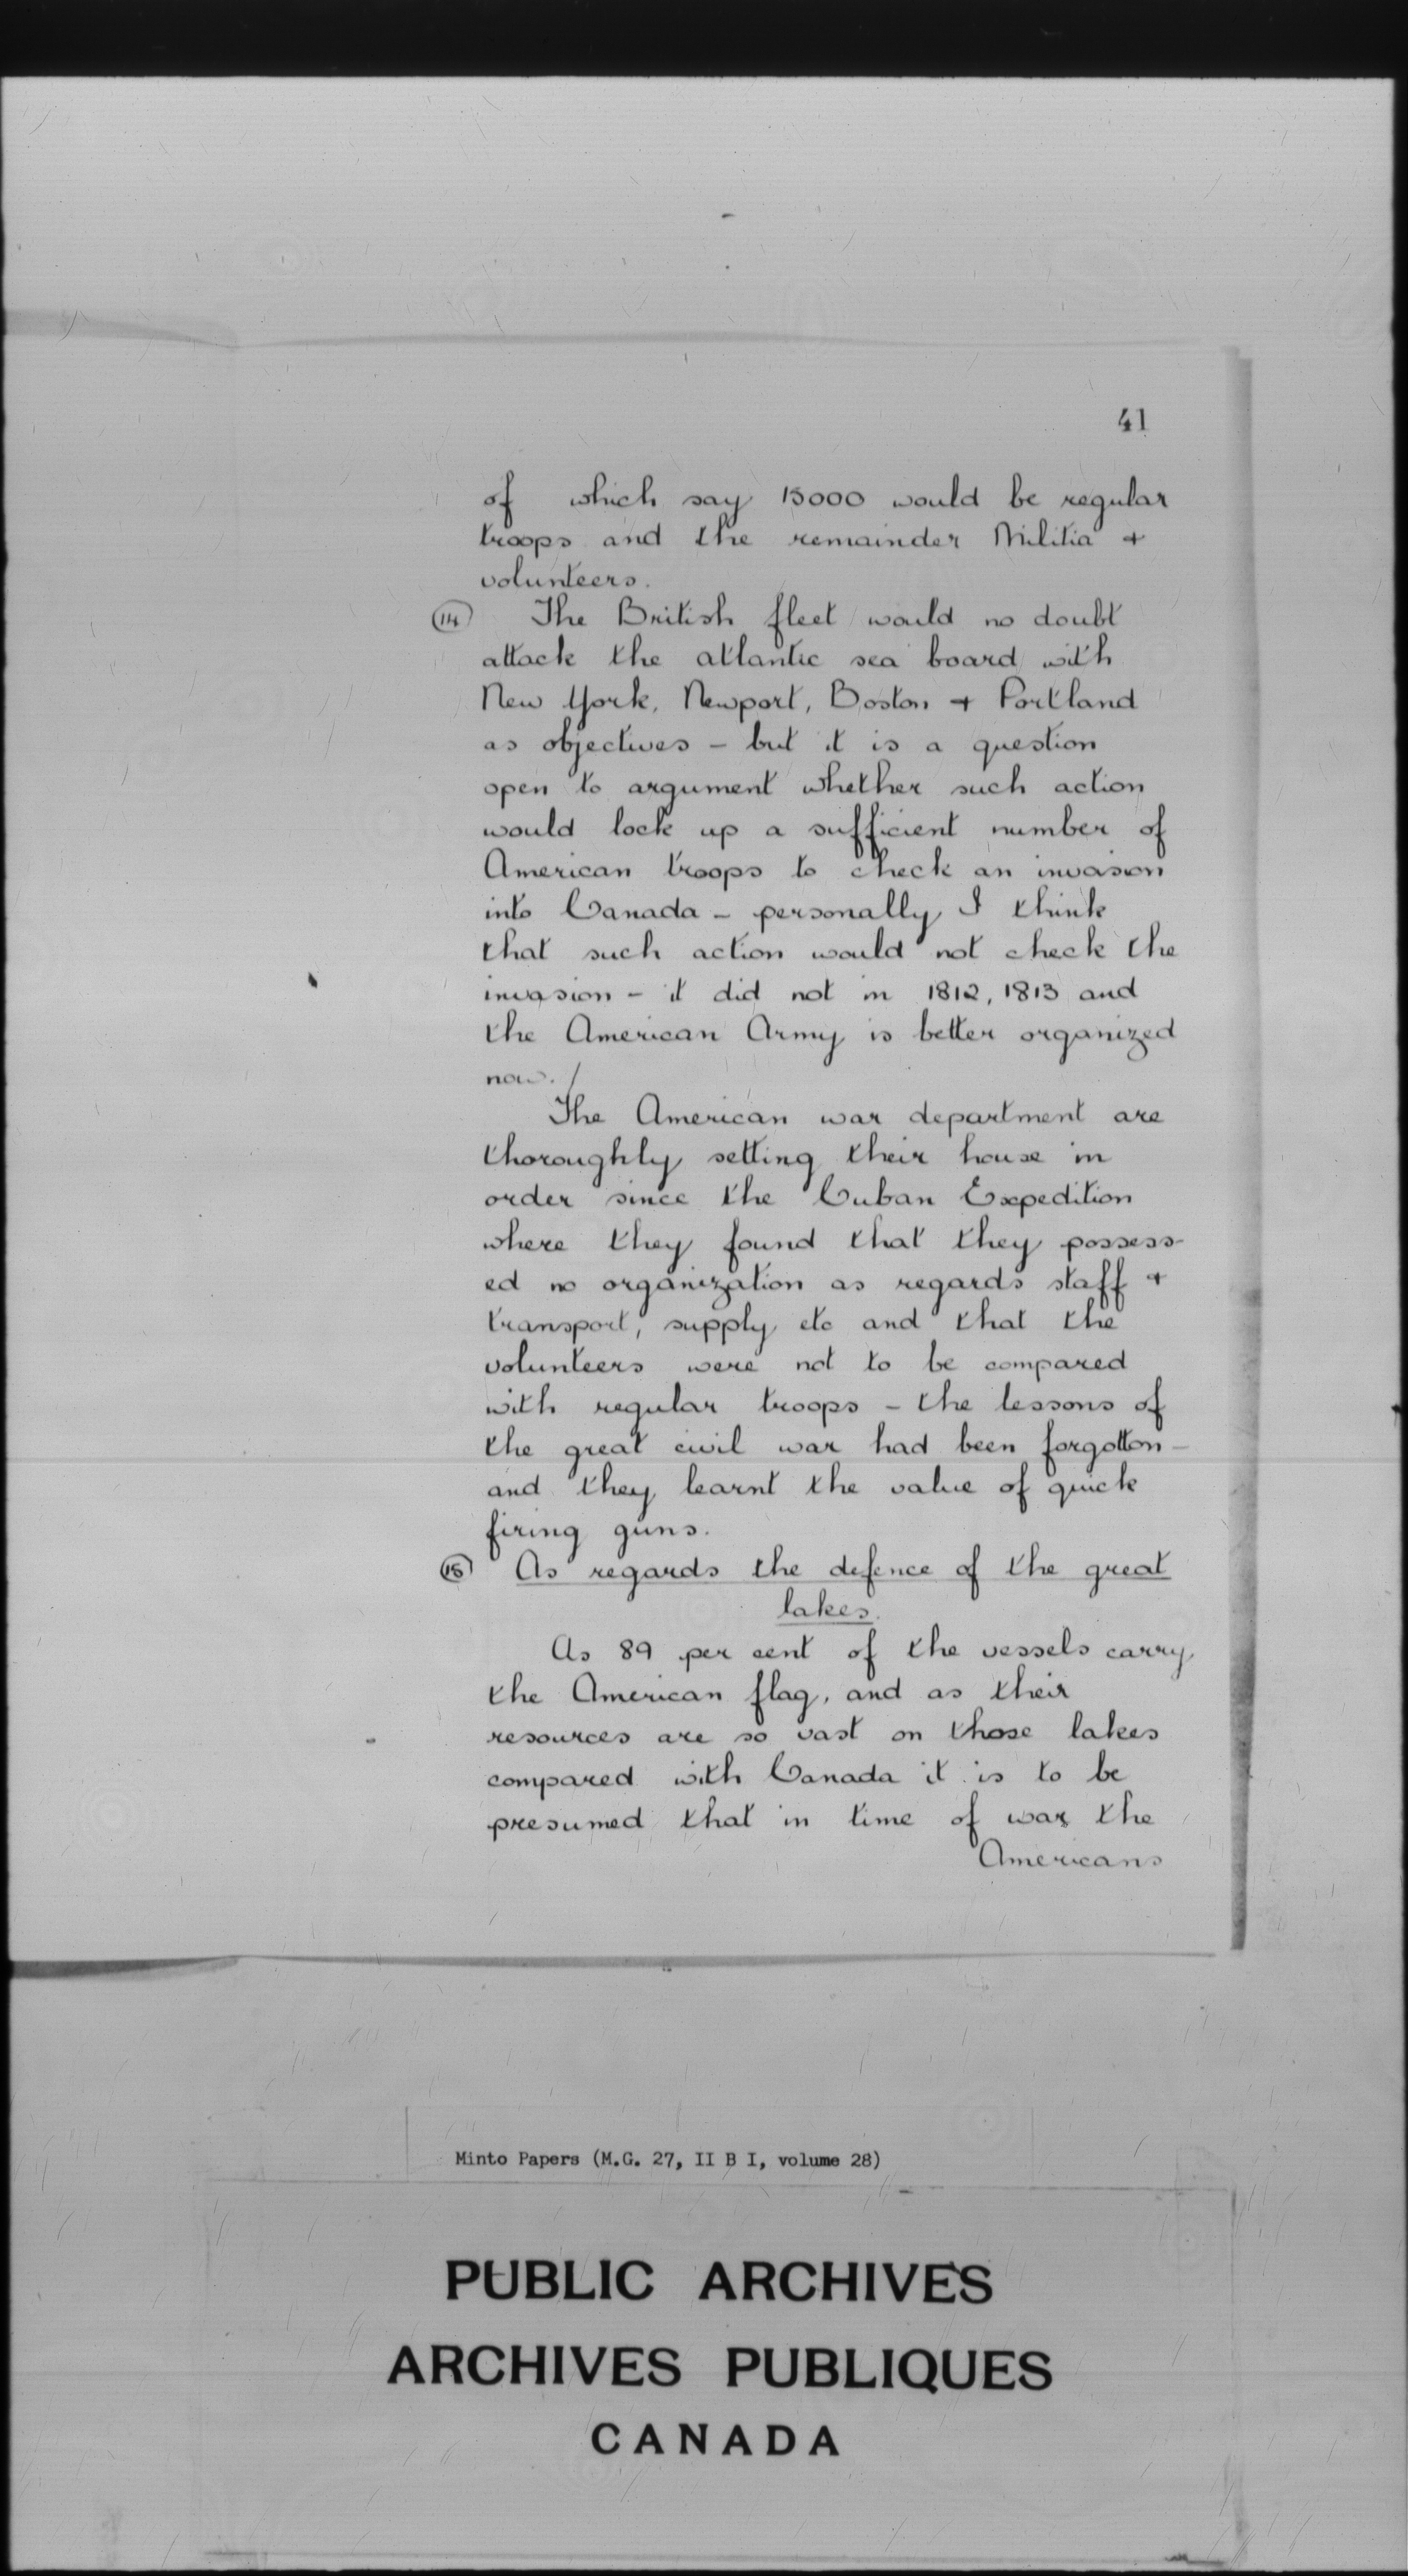 41
of which say 15000 would be regular
troops and the remainder Militia +
volunteers.
(14) The British fleet would no doubt
attack the atlantic sea board with
New York, Newport, Boston + Portland
as objectives - but it is a question
open to argument whether such action
would lock up a sufficient number of
American troops to check an invasion
into Canada - personally I think
that such action would not check the
invasion - it did not in 1812, 1813 and
the American Army is better organized
now. /
The American war department are
thoroughly setting their house in
order since the Cuban Expedition
where they found that they possess-
ed no organization as regards staff +
transport, supply etc and that the
volunteers were not to be compared
with regular troops - the lessons of
the great civil war had been forgotton -
and they learnt the value of quick
firing guns.
(15) As regards the defence of the great
lakes.
As 89 per cent of the vessels carry
the American flag, and as their
resources are so vast on those lakes
compared with Canada it is to be
presumed that in time of war the
Americans
Minto Papers (M.G. 27, II B I, volume 28)
PUBLIC ARCHIVES
ARCHIVES PUBLIQUES
CANADA